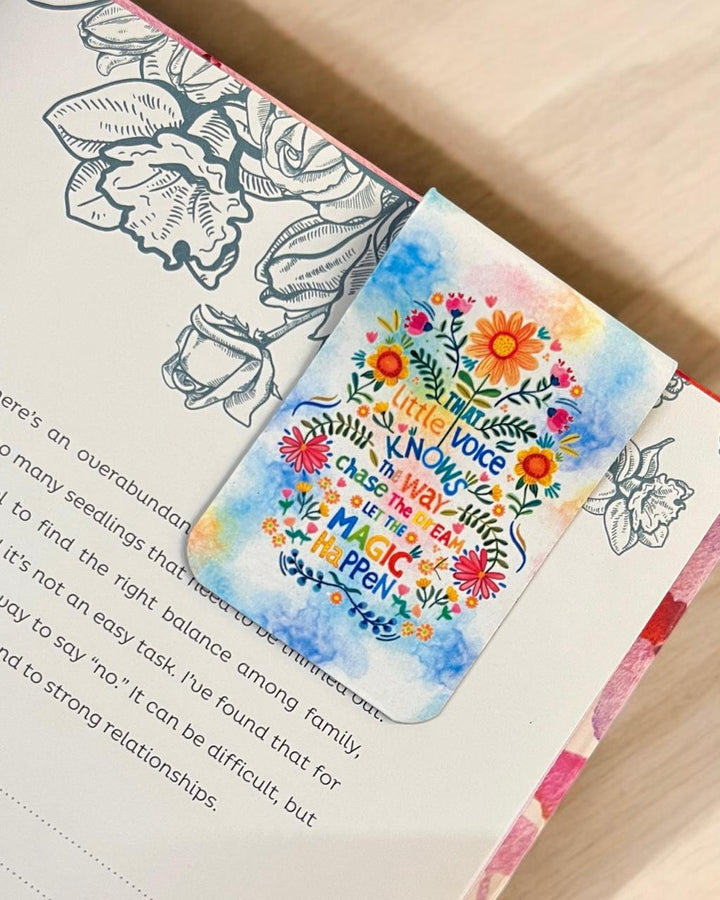 THAT
Little VOICE
KNOWS
THE WAY
chase THE DREAM
LET THE
MAGIC
HaPPeN
here's an overabundan
o many seedlings that need to be thinned out.
l to find the right balance among family,
it's not an easy task. I've found that for
way to say “no.” It can be difficult, but
nd to strong relationships.